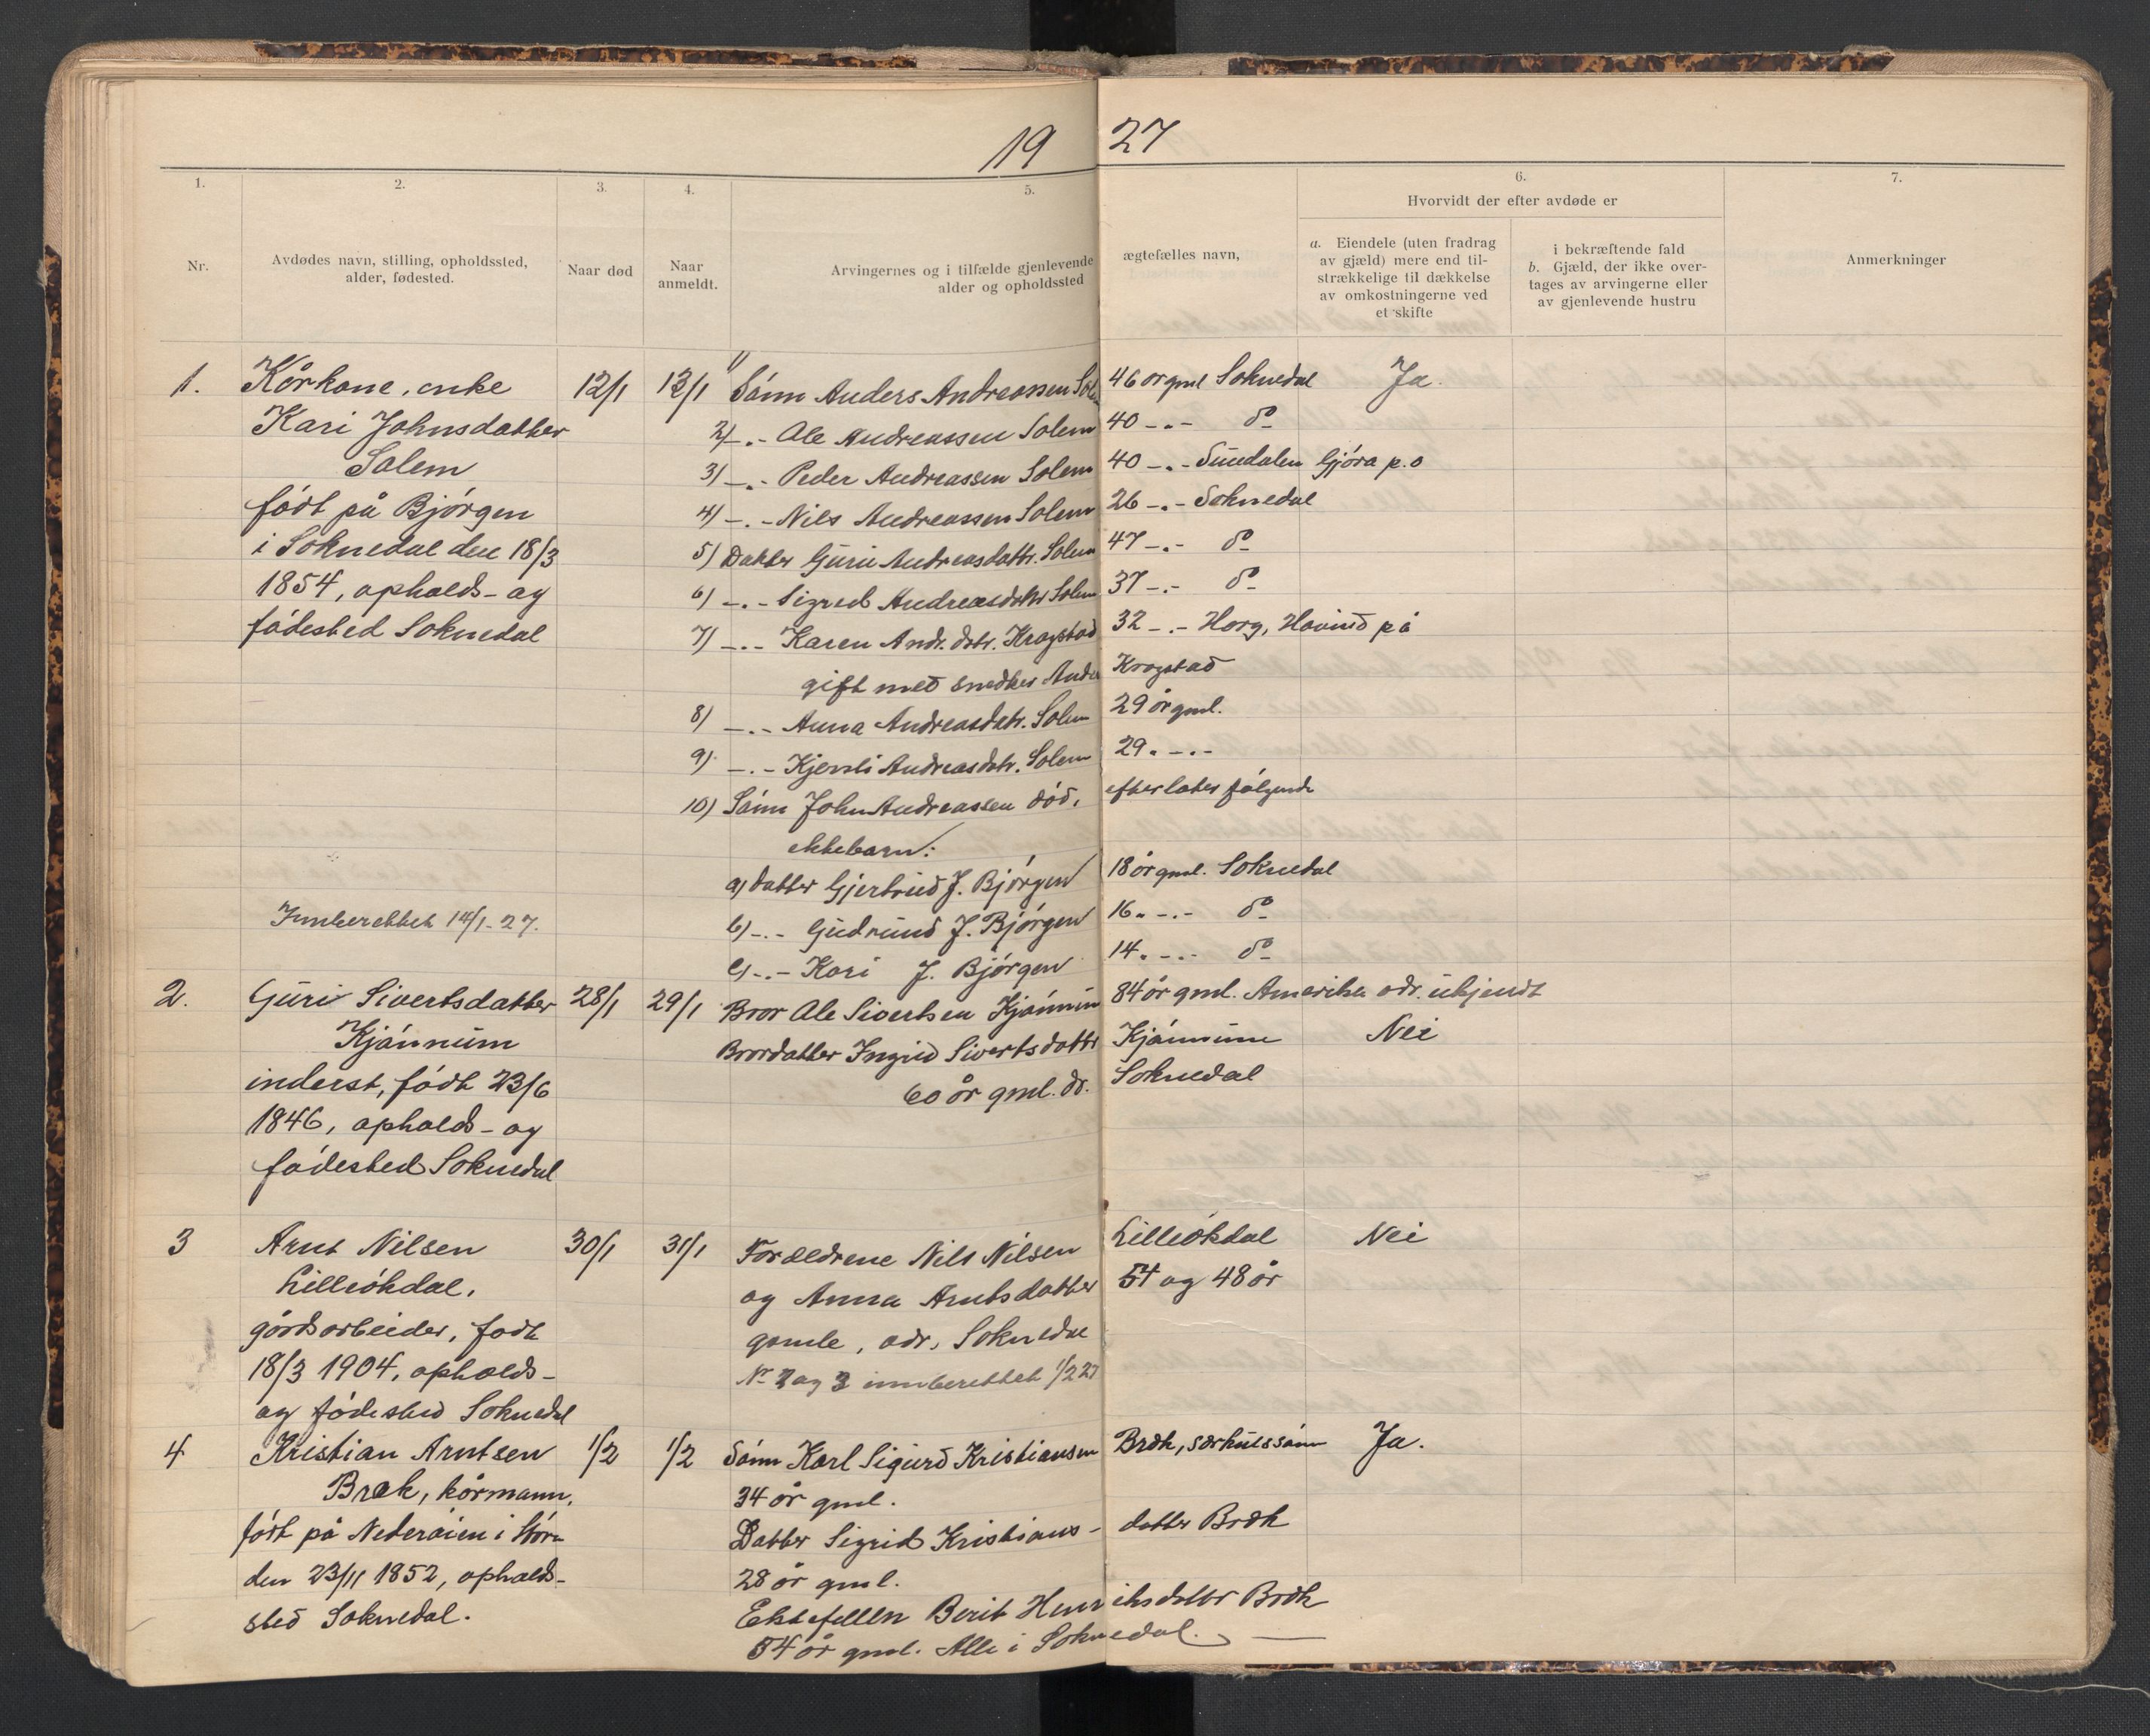 19 27
1. 2. 3. 4. 5. 6. 7.
Nr.
Avdødes navn, stilling, opholdssted,
alder, fødested.
Naar død
Naar
anmeldt.
Arvingernes og i tilfælde gjenlevende ægtefælles navn,
alder og opholdssted
Hvorvidt der efter avdøde er
a. Eiendele (uten fradrag
av gjæld) mere end til-
strækkelige til dækkelse
av omkostningerne ved
et skifte
i bekræftende fald
b. Gjæld, der ikke over-
tages av arvingerne eller
av gjenlevende hustru
Anmerkninger
1. Kårkone, enke 12/1 13/1
Kari Johnsdatter
Solem
født på Bjørgen
i Soknedal den 18/3
1854, opholds- og
fødested Soknedal
Innberettet 14/1-27.
1) Sønn Anders Andreassen Solem 46 år gml Soknedal Ja.
2) -.- Ole Andreassen Solem 40 -.- do
3) -.- Peder Andreassen Solem 40 -.- Sundalen Gjøra p.o
4) -.- Nils Andreassen Solem 26 -.- Soknedal
5) Datter Guru Andreasdattr. Solem 47 -.- do
6) -.- Sigrid Andreasdattr Solem 37 -.- do
7) -.- Karen Andr. dtr. Krogstad 32 -.- Horg, Hovind på
gift med snedker Anders Krogstad
8) -.- Anna Andreasdatr. Solem 29 år gml.
9) -.- Kjersti Andreasdatr. Solem 29. -.-
10) Sønn John Andreassen død, efterlater følgende
ektebarn:
a) datter Gjertrud J. Bjørgen 18 år gml. Soknedal
b) -.- Gudrund J. Bjørgen 16. -.- do
c) -.- Kari J. Bjørgen 14. -.- do
2. Guri Sivertsdatter 28/1 29/1
Kjønnum
inderst, født 23/6
1846, opholds- og
fødested Soknedal
Bror Ole Sivertsen Kjønnum 84 år gml. Amerika adr. ukjendt
Brordatter Ingrid Sivertsdattr Kjønnum Nei
60 år gml. Soknedal
3 Arnt Nilsen 30/1 31/1
Lilleøkdal,
gårdsarbeider, født
18/3 1904, opholds-
og fødested Soknedal
Foreldrene Nils Nilsen Lilleøkdal Nei
og Anna Arntsdatter 54 og 48 år
gamle, adr. Soknedal
Nr 2 og 3 innberettet 1/2 27
4 Kristian Arntsen 1/2 1/2
Bræk, kårmann,
født på Nederøien i Støren
den 23/11 1852, opholds-
sted Soknedal.
Sønn Karl Sigurd Kristiansen Bræk, særkulssønn Ja.
34 år gml.
Datter Sigrid Kristians- datter Bræk
28 år gml.
Ektefellen Berit Henriksdattr Bræk
54 år gml. Alle i Soknedal.